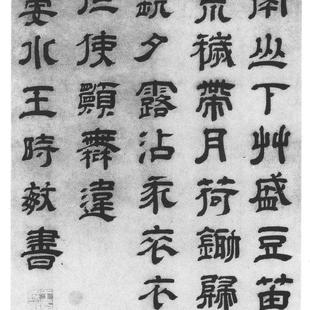 南山下艸盛豆苗
荒穢帶月荷鋤歸
夕露沾我衣衣
但使願無違
婁水王時敏書